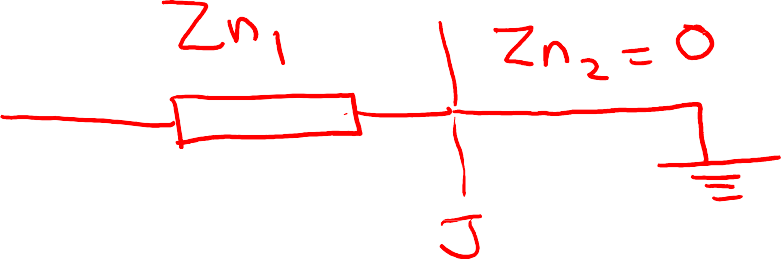 Zn₁
Zn₂ = 0
J